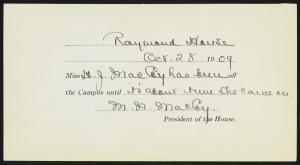 Raymond House
Oct. 28 1909
Miss J MacCoy has been at
the Campus until about nine She came on.
M. N. MacCoy
President of the House.